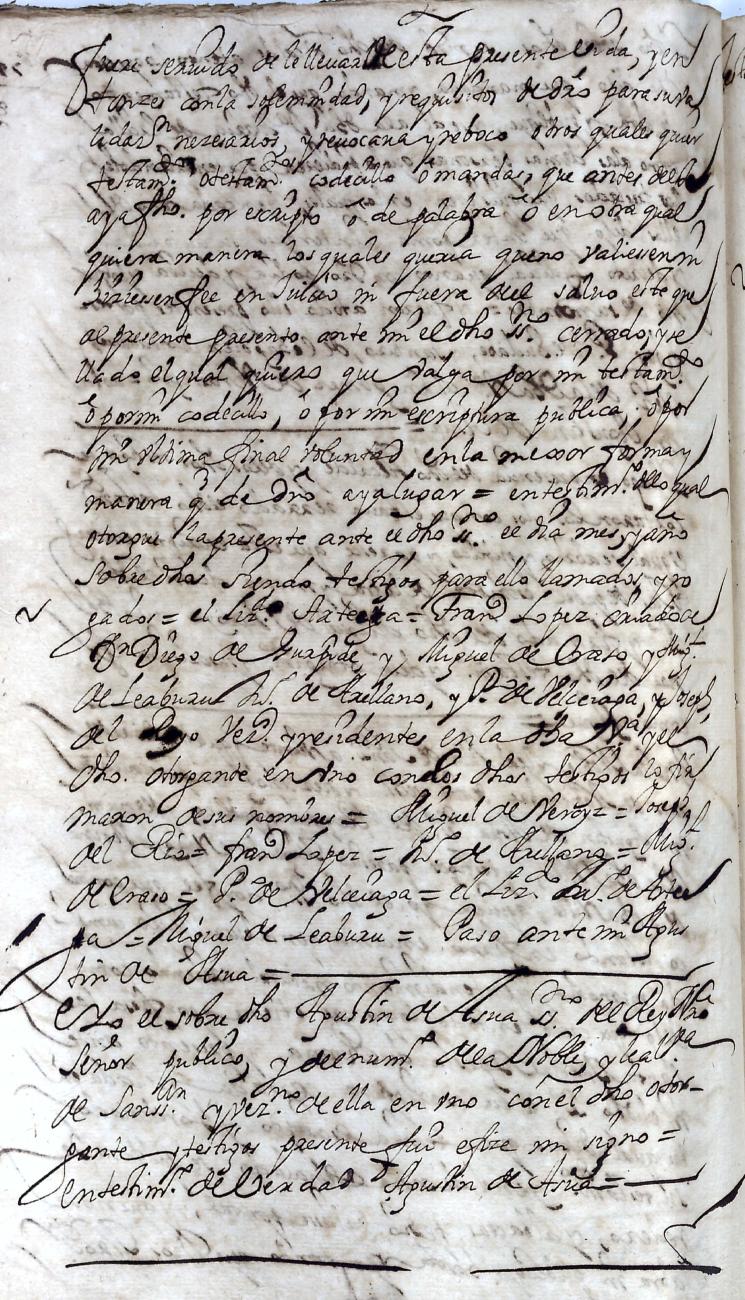 fuere seruido de llevarme desta presente vida, y en
tonzes con la solemnidad, y requisitos de dro para su va
lidazon nezesarios, y reuocaua y reboco otros quales quier
testamto o testamtos codecillo o mandas, que antes deste
aya fho. por escripto o de palabra o en otra qual
quiera manera los quales queria que no valiessen ni
hiziessen fee en Juicio ni fuera del saluo este que
al presente presento ante mi el dho ssno. cerrado, y se
llado el qual quiero que valga por mi testamto
o por mi codecillo, o por mi escriptura publica, o por
mi vltima final voluntad en la mexor forma y
manera q de dro aya lugar = en testimo. dello qual
otorgue la presente ante el dho ssno. el dia mes y año
sobre dhos siendo testigos para ello llamados y ro
gados = el Lizdo. Arteaga = Franco Lopez criado de
Dn Diego de y Miguel de Eraso, y Migl.
de Leaburu de Arellano, y Po. de Velceiaga, y Joseph
del Rio Vezos. y residentes en la dha Va y el
dho. otorgante en vno con los dhos testigos lo fir
maron de sus nombres = Miguel de Veroyz = Joseph
del Rio = Franco Lopez = de Arellano = Migl.
de Eraso = Po. de Velceiaga = el Lizdo. de Artea
ga = Miguel de Leaburu = Paso ante mi Agus
tin de Asua =
E Yo el sobre dho Agustin de Asua ssno. del Rey Nro
señor publico, y del numo. de la Noble, y leal Va
de Sanssan. y vezno. de ella en vno con el dho otor-
gante y testigos presente fui e fize mi signo =
en testimo. de Verdad Agustin de Asua =